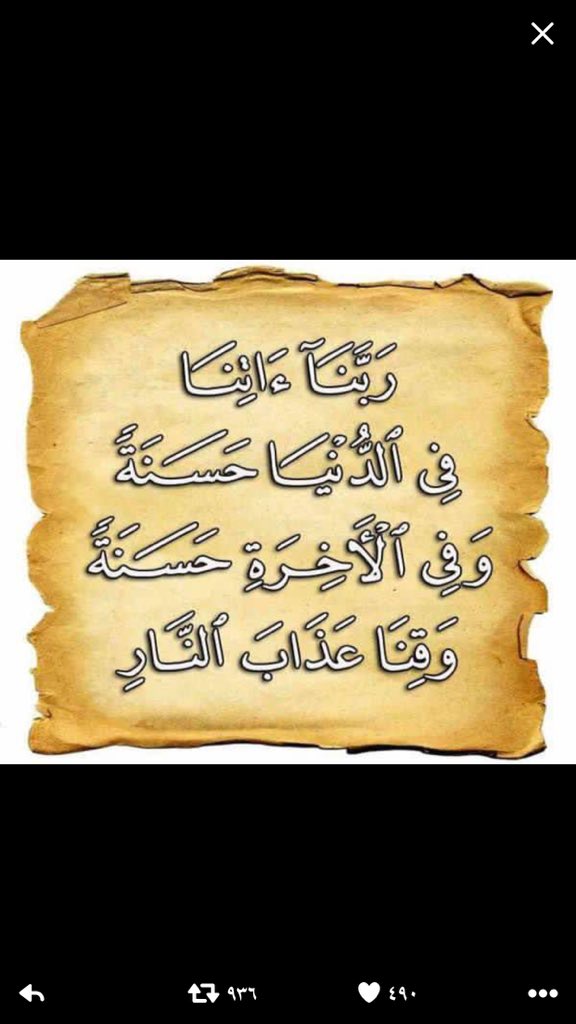 رَبَّنَآ ءَاتِنَا
فِى ٱلدُّنْيَا حَسَنَةً
وَفِى ٱلْأَخِرَةِ حَسَنَةً
وَقِنَا عَذَابَ ٱلنَّارِ
٩٣٦ ٤٩٠